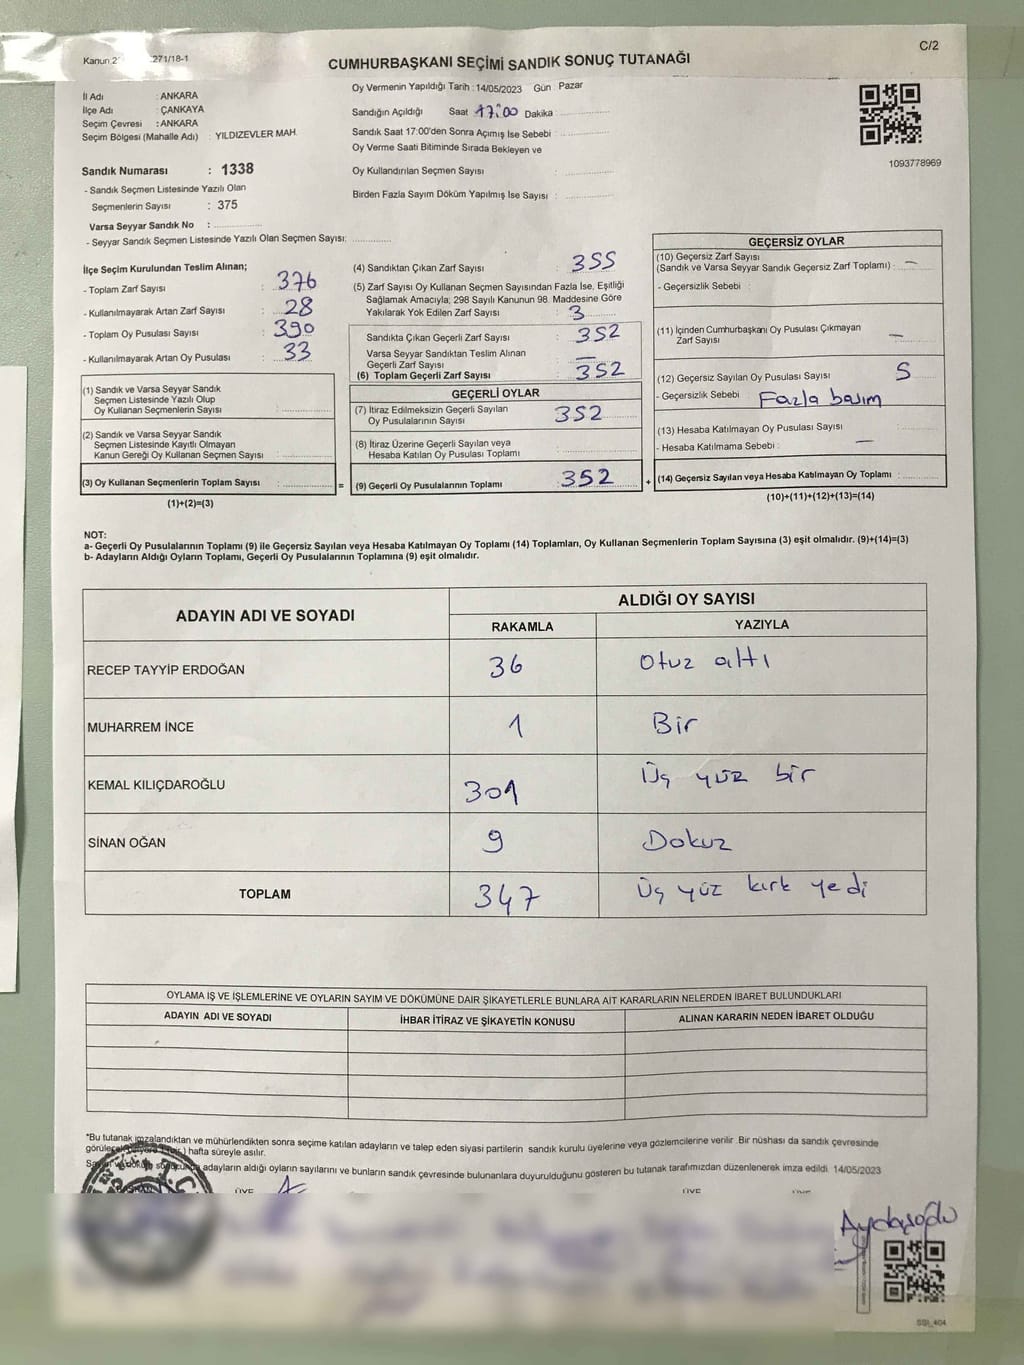 Kanun 2 271/18-1
C/2
CUMHURBAŞKANI SEÇİMİ SANDIK SONUÇ TUTANAĞI
İl Adı : ANKARA
İlçe Adı : ÇANKAYA
Seçim Çevresi : ANKARA
Seçim Bölgesi (Mahalle Adı) : YILDIZEVLER MAH.
Sandık Numarası : 1338
- Sandık Seçmen Listesinde Yazılı Olan
Seçmenlerin Sayısı : 375
Varsa Seyyar Sandık No :
- Seyyar Sandık Seçmen Listesinde Yazılı Olan Seçmen Sayısı:
Oy Vermenin Yapıldığı Tarih : 14/05/2023 Gün : Pazar
Sandığın Açıldığı Saat 17:00 Dakika :
Sandık Saat 17:00'den Sonra Açımış İse Sebebi :
Oy Verme Saati Bitiminde Sırada Bekleyen ve
Oy Kullandırılan Seçmen Sayısı :
Birden Fazla Sayım Döküm Yapılmış İse Sayısı :
1093778969
İlçe Seçim Kurulundan Teslim Alınan;
- Toplam Zarf Sayısı : 376
- Kullanılmayarak Artan Zarf Sayısı : 28
- Toplam Oy Pusulası Sayısı : 390
- Kullanılmayarak Artan Oy Pusulası : 33
(1) Sandık ve Varsa Seyyar Sandık
Seçmen Listesinde Yazılı Olup
Oy Kullanan Seçmenlerin Sayısı :
(2) Sandık ve Varsa Seyyar Sandık
Seçmen Listesinde Kayıtlı Olmayan
Kanun Gereği Oy Kullanan Seçmen Sayısı :
(3) Oy Kullanan Seçmenlerin Toplam Sayısı :
(1)+(2)=(3)
=
(4) Sandıktan Çıkan Zarf Sayısı : 355
(5) Zarf Sayısı Oy Kullanan Seçmen Sayısından Fazla İse, Eşitliği
Sağlamak Amacıyla; 298 Sayılı Kanunun 98. Maddesine Göre
Yakılarak Yok Edilen Zarf Sayısı : 3
Sandıkta Çıkan Geçerli Zarf Sayısı : 352
Varsa Seyyar Sandıktan Teslim Alınan
Geçerli Zarf Sayısı : —
(6) Toplam Geçerli Zarf Sayısı : 352
GEÇERLİ OYLAR
(7) İtiraz Edilmeksizin Geçerli Sayılan
Oy Pusulalarının Sayısı : 352
(8) İtiraz Üzerine Geçerli Sayılan veya
Hesaba Katılan Oy Pusulası Toplamı :
(9) Geçerli Oy Pusulalarının Toplamı : 352
+
GEÇERSİZ OYLAR
(10) Geçersiz Zarf Sayısı
(Sandık ve Varsa Seyyar Sandık Geçersiz Zarf Toplamı) : —
- Geçersizlik Sebebi :
(11) İçinden Cumhurbaşkanı Oy Pusulası Çıkmayan
Zarf Sayısı : —
(12) Geçersiz Sayılan Oy Pusulası Sayısı : 5
- Geçersizlik Sebebi : Fazla basım
(13) Hesaba Katılmayan Oy Pusulası Sayısı :
- Hesaba Katılmama Sebebi : —
(14) Geçersiz Sayılan veya Hesaba Katılmayan Oy Toplamı :
(10)+(11)+(12)+(13)=(14)
NOT:
a- Geçerli Oy Pusulalarının Toplamı (9) ile Geçersiz Sayılan veya Hesaba Katılmayan Oy Toplamı (14) Toplamları, Oy Kullanan Seçmenlerin Toplam Sayısına (3) eşit olmalıdır. (9)+(14)=(3)
b- Adayların Aldığı Oyların Toplamı, Geçerli Oy Pusulalarının Toplamına (9) eşit olmalıdır.
ADAYIN ADI VE SOYADI
ALDIĞI OY SAYISI
RAKAMLA YAZIYLA
RECEP TAYYİP ERDOĞAN 36 Otuz altı
MUHARREM İNCE 1 Bir
KEMAL KILIÇDAROĞLU 301 Üç yüz bir
SİNAN OĞAN 9 Dokuz
TOPLAM 347 Üç yüz kırk yedi
OYLAMA İŞ VE İŞLEMLERİNE VE OYLARIN SAYIM VE DÖKÜMÜNE DAİR ŞİKAYETLERLE BUNLARA AİT KARARLARIN NELERDEN İBARET BULUNDUKLARI
ADAYIN ADI VE SOYADI İHBAR İTİRAZ VE ŞİKAYETİN KONUSU ALINAN KARARIN NEDEN İBARET OLDUĞU
*Bu tutanak imzalandıktan ve mühürlendikten sonra seçime katılan adayların ve talep eden siyasi partilerin sandık kurulu üyelerine veya gözlemcilerine verilir. Bir nüshası da sandık çevresinde
hafta süreyle asılır.
adayların aldığı oyların sayılarını ve bunların sandık çevresinde bulunanlara duyurulduğunu gösteren bu tutanak tarafımızdan düzenlenerek imza edildi. 14/05/2023
ÜYE ÜYE